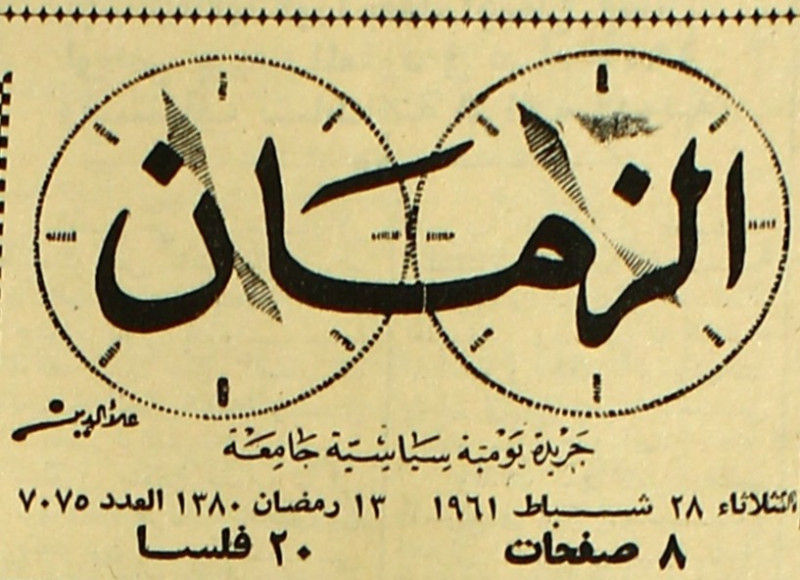 الزمان
علاء الدين
جريدة يومية سياسية جامعة
الثلاثاء ٢٨ شباط ١٩٦١ ١٣ رمضان ١٣٨٠ العدد ٧٠٧٥
٨ صفحات ٢٠ فلسا